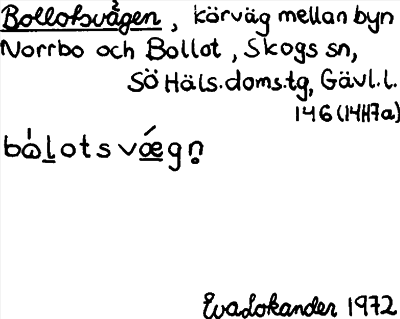 Bollotsvägen, körväg mellan byn
Norrbo och Bollot, Skogs sn,
Sö Häls.doms.tg, Gävl.l.
146 (14H7a)
bὼlotsvǽgn̥
Eva Lokander 1972